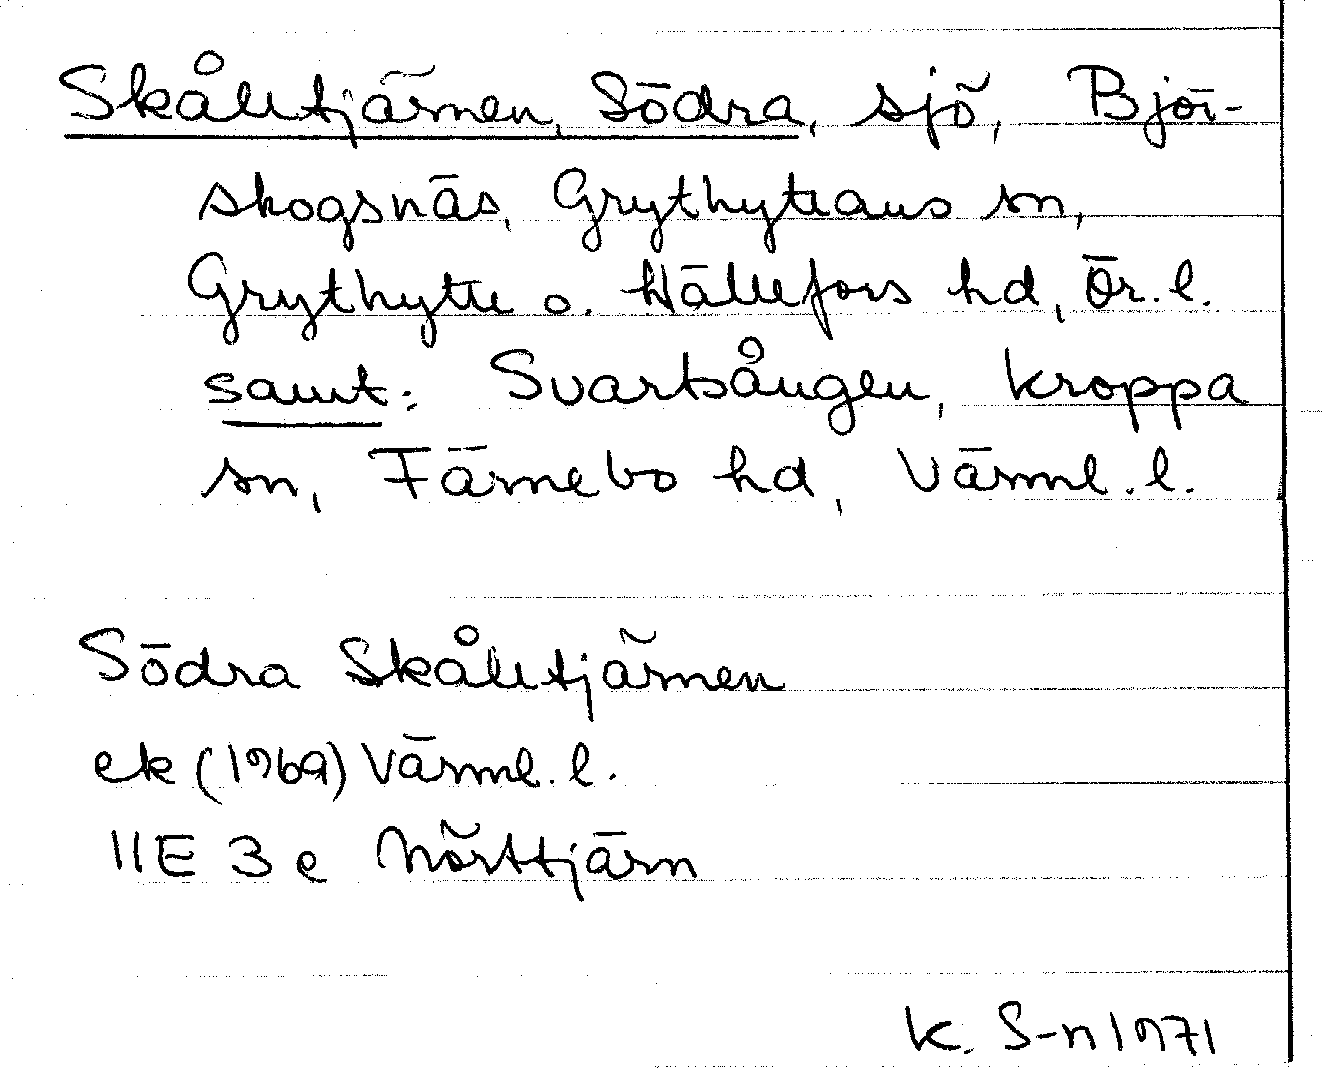 Skålltjärnen, Södra, sjö, Björ-
skogsnäs, Grythytteans sn,
Grythytte o. Hällefors hd, Ör. l.
samt: Svartsången, Kroppa
sn, Färnebo hd, Värml. l.
Södra Skålltjärnen
ek (1969) Värml. l.
11E 3e Mörttjärn
K. S-n 1971